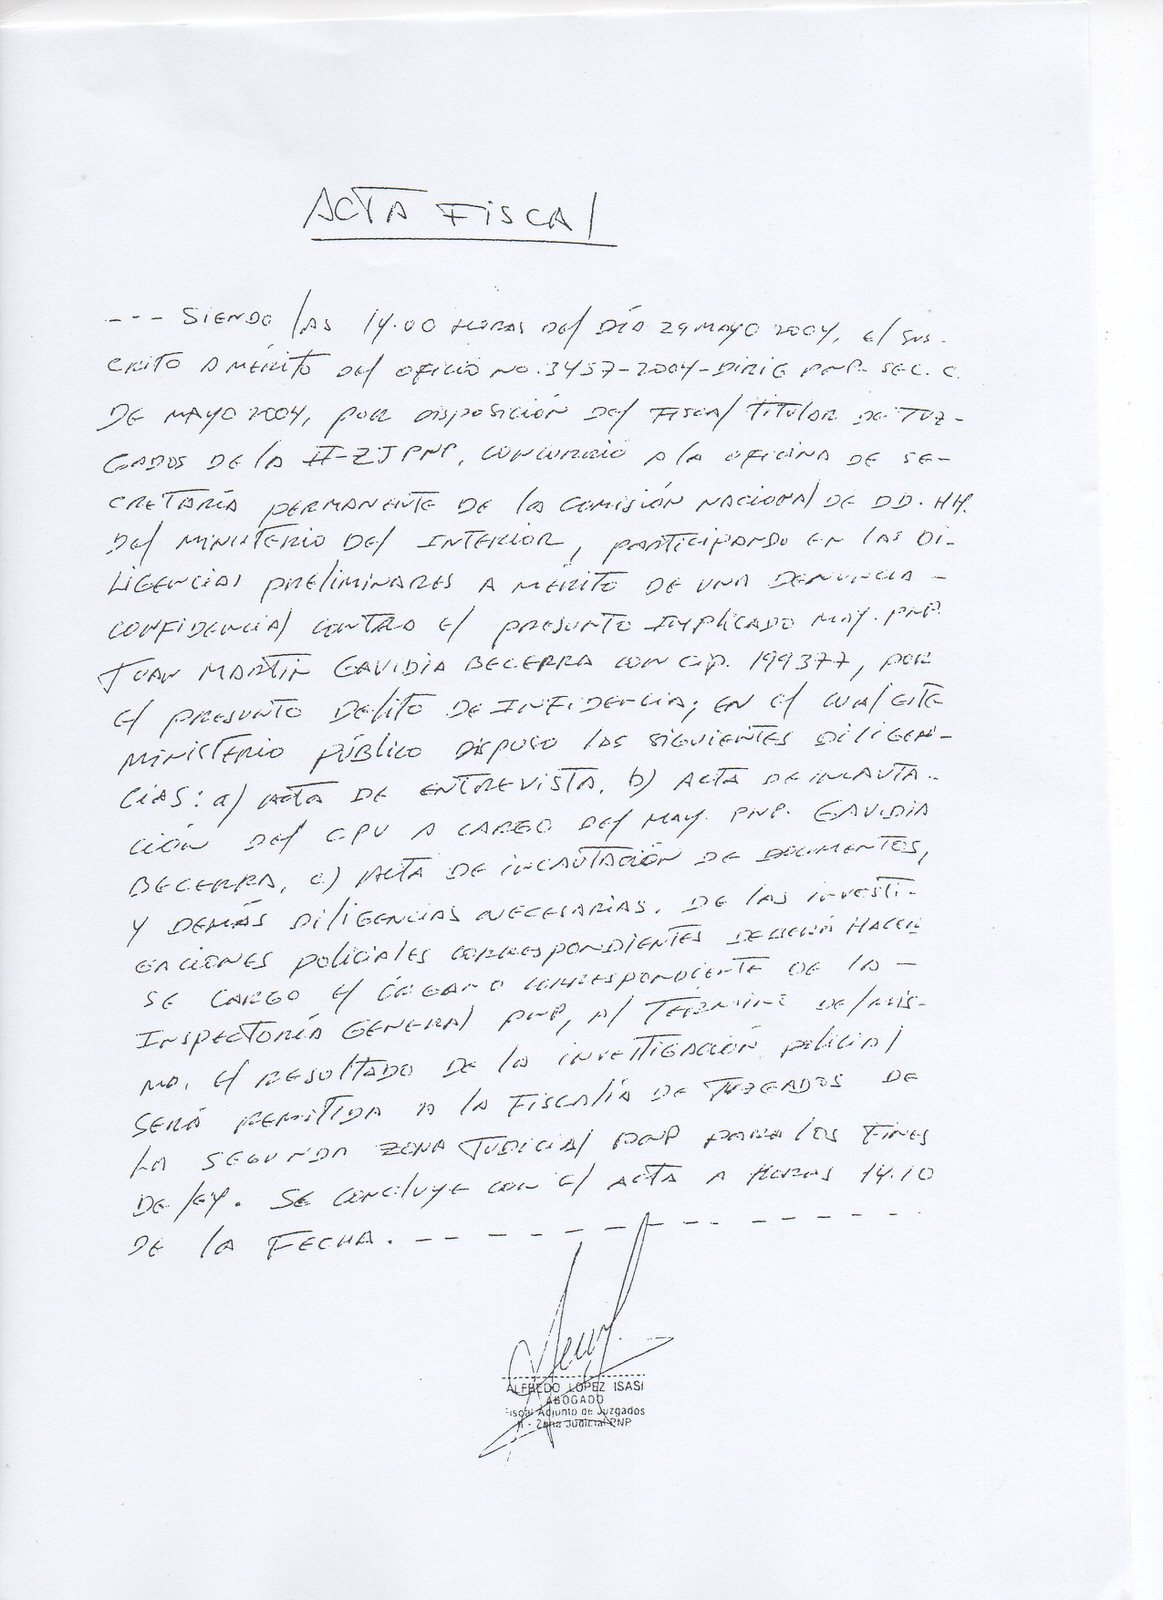 ACTA FISCAL
--- SIENDO LAS 14.00 HORAS DEL DÍA 29 MAYO 2004, EL SUS-
CRITO A MÉRITO DEL OFICIO NO. 3457-2004-DIRIG PNP- SEC. C.
DE MAYO 2004, POR DISPOSICIÓN DEL FISCAL TITULAR DE JUZ-
GADOS DE LA II-ZJPNP, CONCURRIO A LA OFICINA DE SE-
CRETARÍA PERMANENTE DE LA COMISIÓN NACIONAL DE DD. HH.
DEL MINISTERIO DEL INTERIOR, PARTICIPANDO EN LAS DI-
LIGENCIAS PRELIMINARES A MÉRITO DE UNA DENUNCIA -
CONFIDENCIAL CONTRA EL PRESUNTO IMPLICADO MAY. PNP
JUAN MARTIN GAVIDIA BECERRA CON CIP. 199377, POR
EL PRESUNTO DELITO DE INFIDENCIA; EN EL CUAL ESTE
MINISTERIO PÚBLICO DISPUSO LAS SIGUIENTES DILIGEN-
CIAS: a) ACTA DE ENTREVISTA. b) ACTA DE INCAUTA-
CIÓN DEL CPU A CARGO DEL MAY. PNP. GAVIDIA
BECERRA, c) ACTA DE INCAUTACIÓN DE DOCUMENTOS,
Y DEMÁS DILIGENCIAS NECESARIAS. DE LAS INVESTI-
GACIONES POLICIALES CORRESPONDIENTES DEBERÁ HACER
SE CARGO EL ÓRGANO CORRESPONDIENTE DE LA -
INSPECTORÍA GENERAL PNP, AL TÉRMINO DEL MIS-
MO. EL RESULTADO DE LA INVESTIGACIÓN POLICIAL
SERÁ REMITIDA A LA FISCALÍA DE JUZGADOS DE
LA SEGUNDA ZONA JUDICIAL PNP PARA LOS FINES
DE LEY. SE CONCLUYE CON EL ACTA A HORAS 14.10
DE LA FECHA. - - - - - - - - - - - -
ALFREDO LOPEZ ISASI
ABOGADO
Fiscal Adjunto de Juzgados
II - Zona Judicial PNP